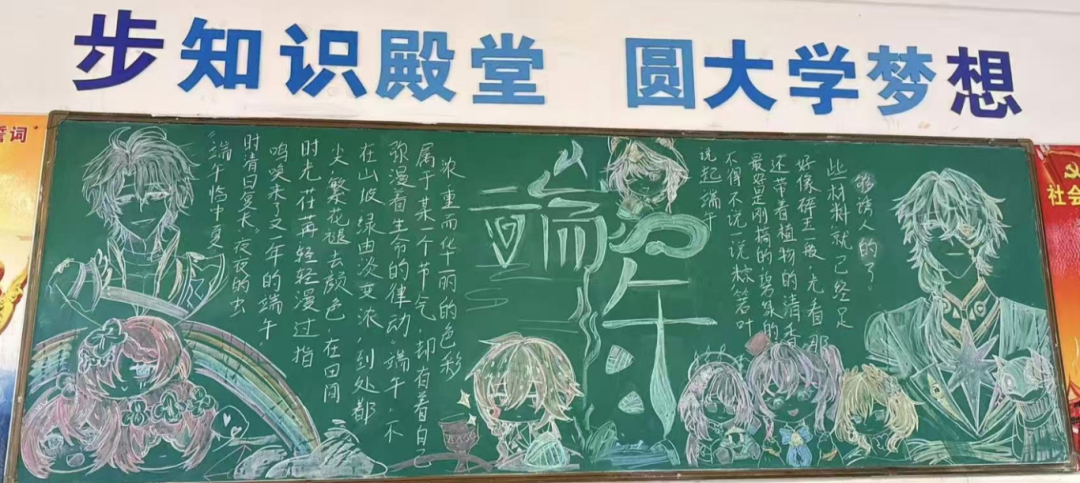 步知识殿堂 圆大学梦想
誓词
社会
“端午临中夏,
时清日复长。”夜夜的虫
鸣唤来了又一年的端午。
时光荏苒轻轻漫过指
尖,繁花褪去颜色,在田间
在山坡绿由淡变浓,到处都
弥漫着生命的律动。端午,不
属于某一个节气,却有着自己
浓重而华丽的色彩
端午
说起端午
不得不说一说粽箬叶
最好是刚摘的碧绿的
还带着植物的清香
好像碎玉一般,光看那
些材料,就已经足
够诱人的了。